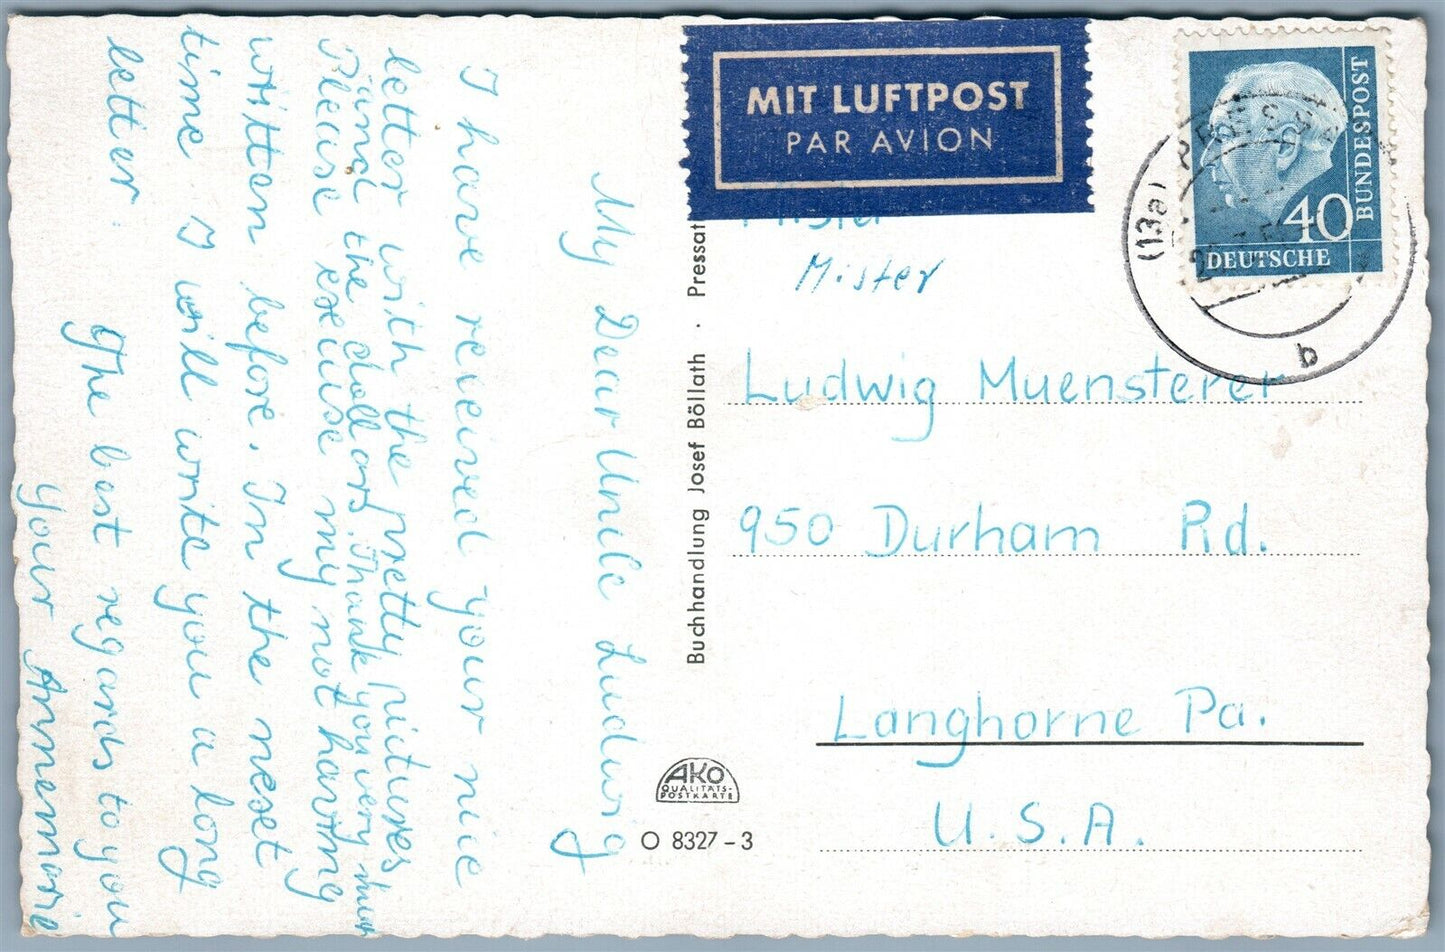 My Dear Unile Ludwig
I have received your nice
letter with the pretty pictures
and the dollars. Thank you very much
Please excuse my not having
written before. In the next
time I will write you a long
letter.
The best regards to you
your Annemarie
Buchhandlung Josef Böllath · Pressat
AKO
QUALITÄTS-
POSTKARTE
O 8327 - 3
MIT LUFTPOST
PAR AVION
DEUTSCHE
BUNDESPOST
40
(13a)
b
Mister
Ludwig Muensterer
950 Durham Rd.
Langhorne Pa.
U.S.A.